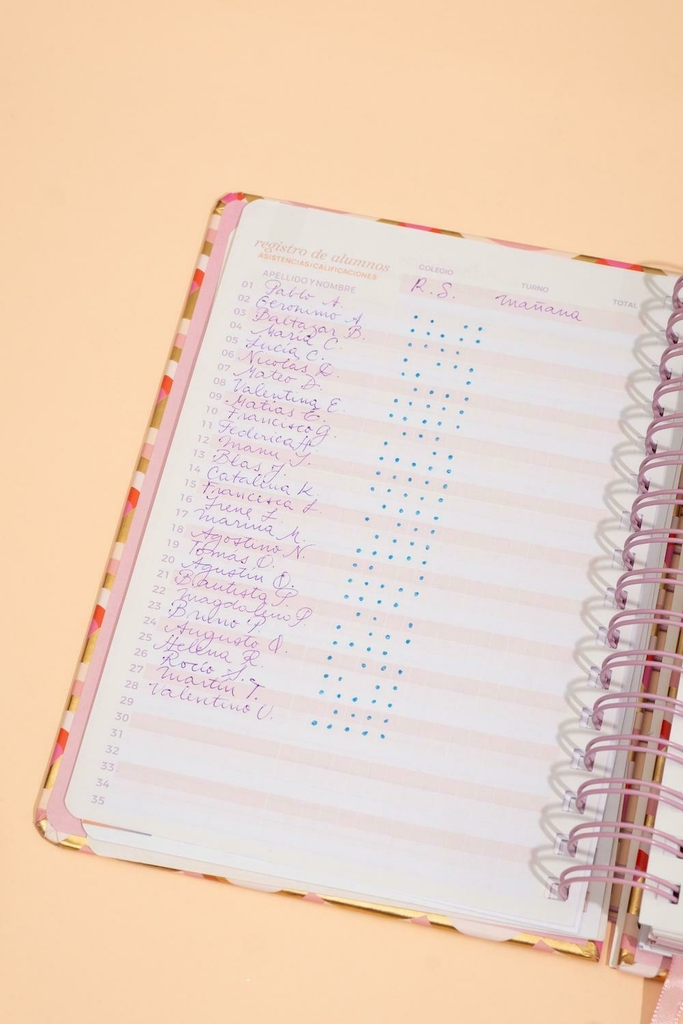 registro de alumnos
ASISTENCIAS/CALIFICACIONES
COLEGIO TURNO TOTAL
R.S. mañana
APELLIDO Y NOMBRE
01 Pablo A.
02 Geronimo A.
03 Baltazar B.
04 Maria C.
05 Lucia C.
06 Nicolas D.
07 Mateo D.
08 Valentina E.
09 Matias E.
10 Francisco G.
11 Federica H.
12 Manu J.
13 Blas J.
14 Catalina K.
15 Francesca L.
16 Irene L.
17 Marina M.
18 Agostino N.
19 Tomas O.
20 Agustin O.
21 Bautista P.
22 Magdalena P.
23 Bruno P.
24 Augusto Q.
25 Helena R.
26 Rocio S.
27 Martin T.
28 Valentino U.
29
30
31
32
33
34
35